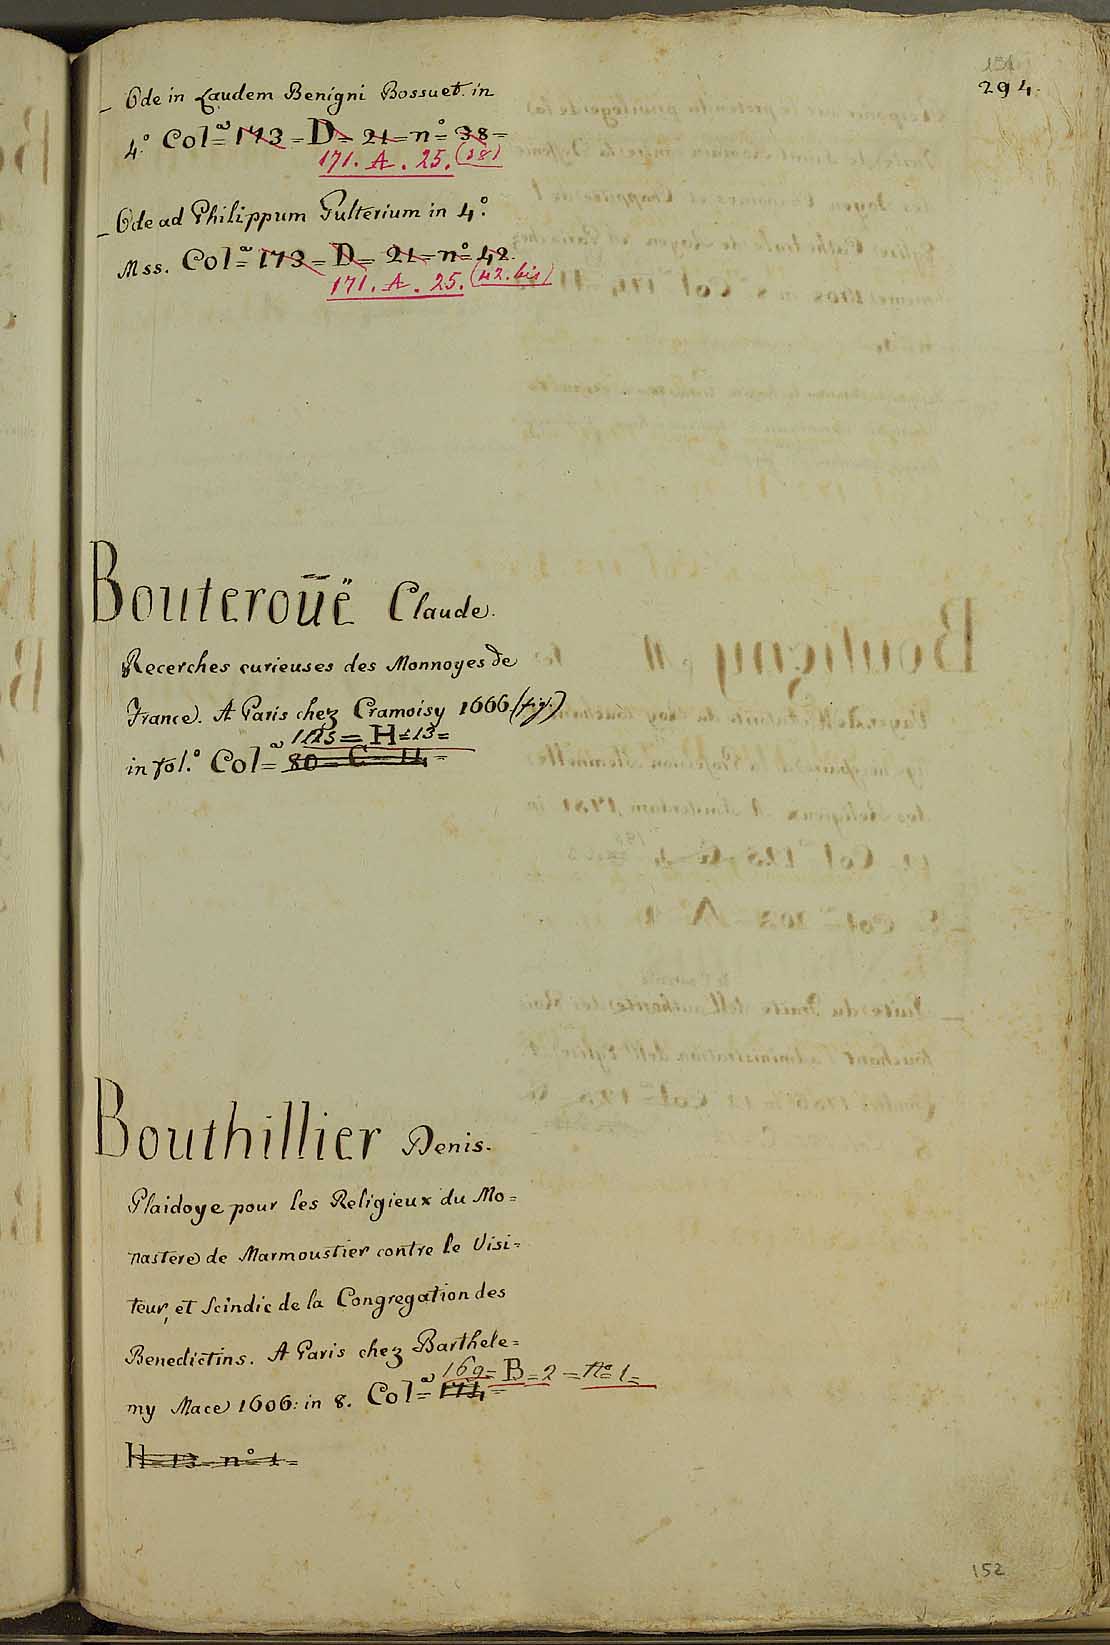 151
294.
– Ode in Laudem Benigni Bossuet. in
4.° Col=ª 173 = D = 21 = n° 38 =
171. A. 25. (38)
– Ode ad Philippum Gulterium in 4.°
Mss. Col=ª 173 = D = 21 = n° 42.
171. A. 25. (42. bis)
Bouteroüë Claude.
Recerches curieuses des Monnoyes de
France. A Paris chez Cramoisy 1666. (fig.)
= H = 13 =
in fol.° Col=ª 80 = C = 11 =
Bouthillier Denis.
Plaidoye pour les Religieux du Mo=
nastere de Marmoustier contre le Visi=
teur, et Scindic de la Congregation des
Benedictins. A Paris chez Barthele=
169 = B = 2 = n° 1 =
my Mace 1606: in 8. Col=ª 171 =
H = 13 = n° 1 =
152